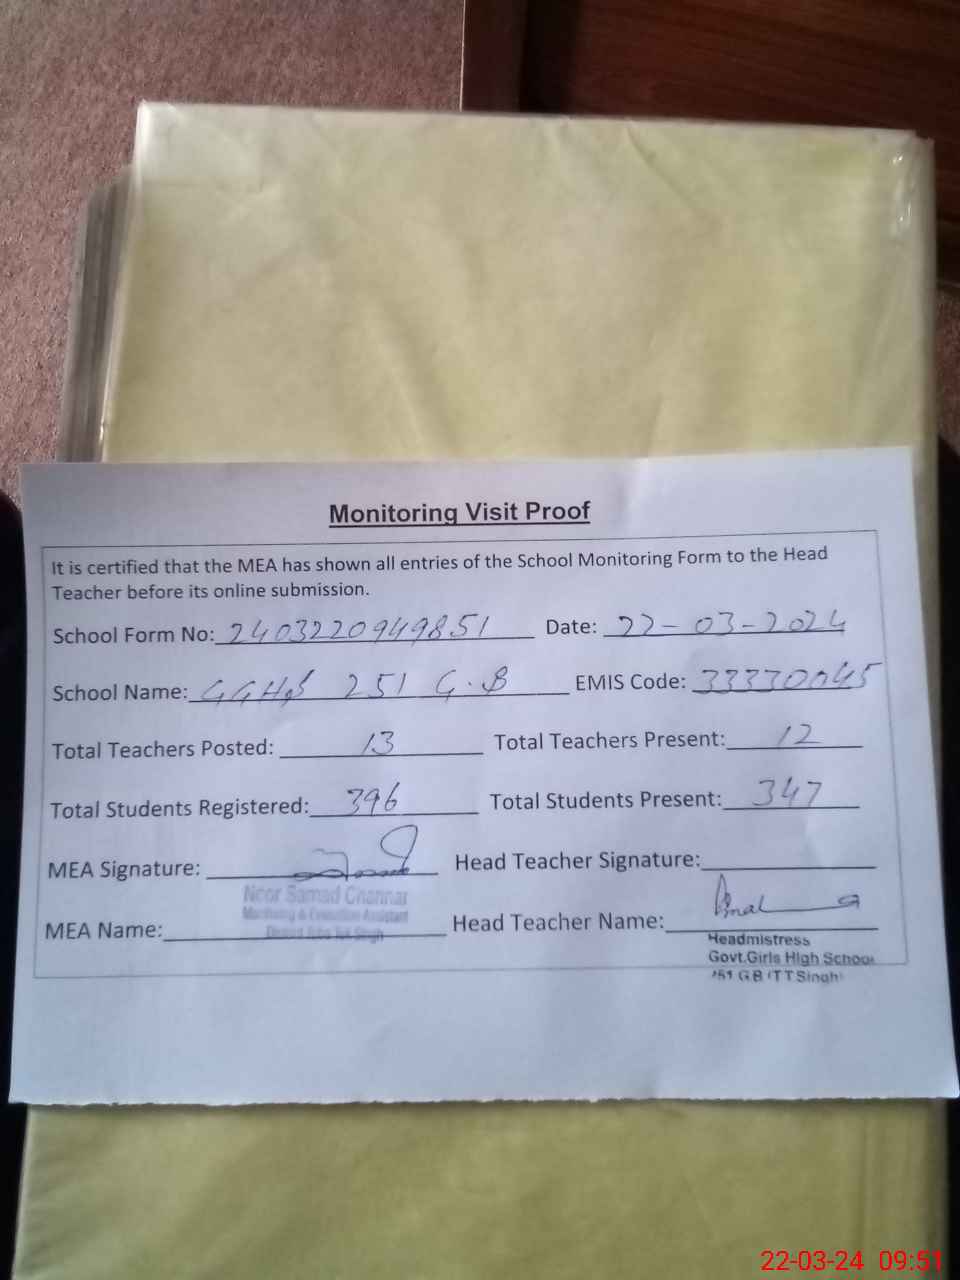 Monitoring Visit Proof
It is certified that the MEA has shown all entries of the School Monitoring Form to the Head
Teacher before its online submission.
School Form No: 2403220949851 Date: 22-03-2024
School Name: GGHS 251 G.B EMIS Code: 33330045
Total Teachers Posted: 13 Total Teachers Present: 12
Total Students Registered: 396 Total Students Present: 347
MEA Signature: Head Teacher Signature:
Noor Samad Channar
Monitoring & Evaluation Assistant
District Toba Tek Singh
MEA Name: Head Teacher Name:
Headmistress
Govt.Girls High School
251 G.B (T.T.Singh)
22-03-24 09:51